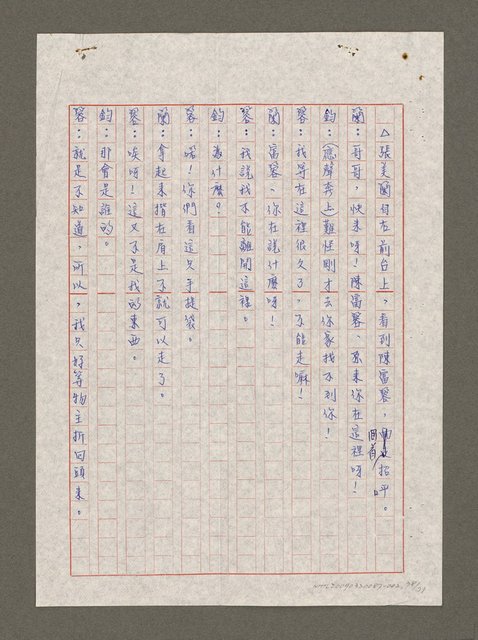 △張美蘭自左前台上，看到陳富翠，回首招呼。
蘭：哥哥，快來呀！陳富翠、原來你在這裡呀！
鈞：（應聲奔上）難怪剛才去你家找不到你！
翠：我等在這裡很久了，不能走嘛！
蘭：富翠、你在說什麼呀！
翠：我說我不能離開這裡。
鈞：為什麼？
翠：喏！你們看這只手提袋。
蘭：拿起來揹在肩上不就可以走了。
翠：唉呀！這又不是我的東西。
鈞：那會是誰的。
翠：就是不知道，所以，我只好等物主折回頭來。